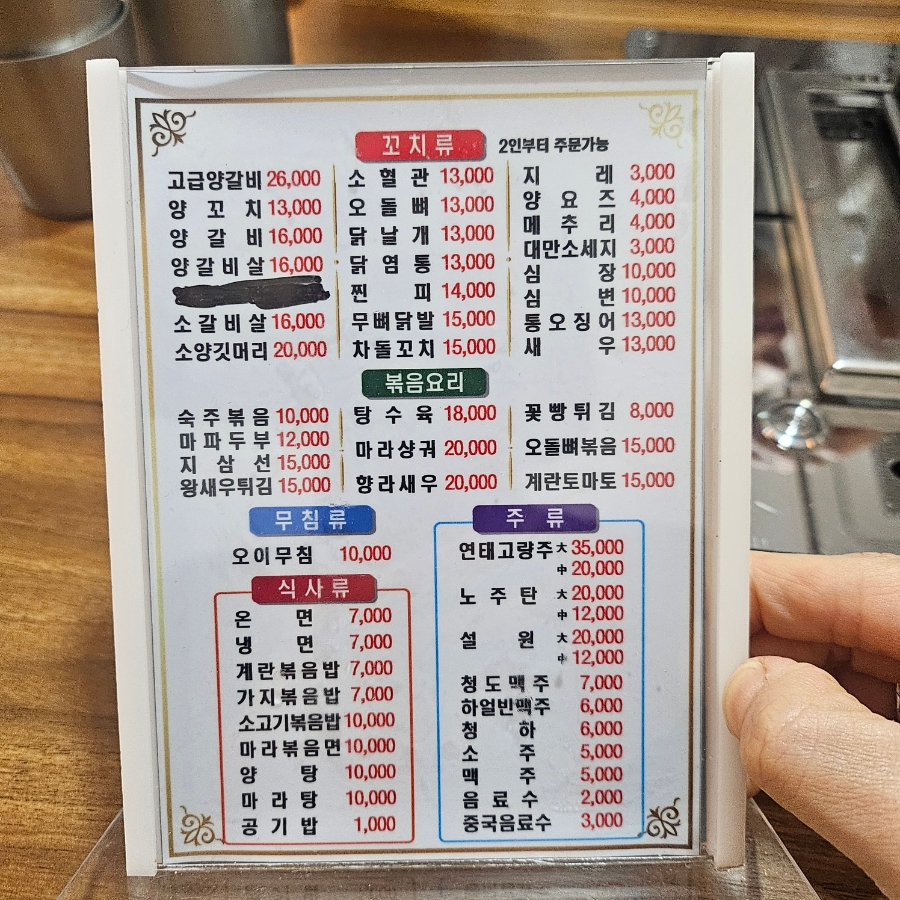 꼬치류 2인부터 주문가능
고급양갈비 26,000
양꼬치 13,000
양갈비 16,000
양갈비살 16,000
소갈비살 16,000
소양깃머리 20,000
소혈관 13,000
오돌뼈 13,000
닭날개 13,000
닭염통 13,000
찐피 14,000
무뼈닭발 15,000
차돌꼬치 15,000
지레 3,000
양요즈 4,000
메추리 4,000
대만소세지 3,000
심장 10,000
심변 10,000
통오징어 13,000
새우 13,000
볶음요리
숙주볶음 10,000
마파두부 12,000
지삼선 15,000
왕새우튀김 15,000
탕수육 18,000
마라샹궈 20,000
향라새우 20,000
꽃빵튀김 8,000
오돌뼈볶음 15,000
계란토마토 15,000
무침류
오이무침 10,000
식사류
온면 7,000
냉면 7,000
계란볶음밥 7,000
가지볶음밥 7,000
소고기볶음밥 10,000
마라볶음면 10,000
양탕 10,000
마라탕 10,000
공기밥 1,000
주류
연태고량주 大 35,000
中 20,000
노주탄 大 20,000
中 12,000
설원 大 20,000
中 12,000
청도맥주 7,000
하얼빈맥주 6,000
청하 6,000
소주 5,000
맥주 5,000
음료수 2,000
중국음료수 3,000